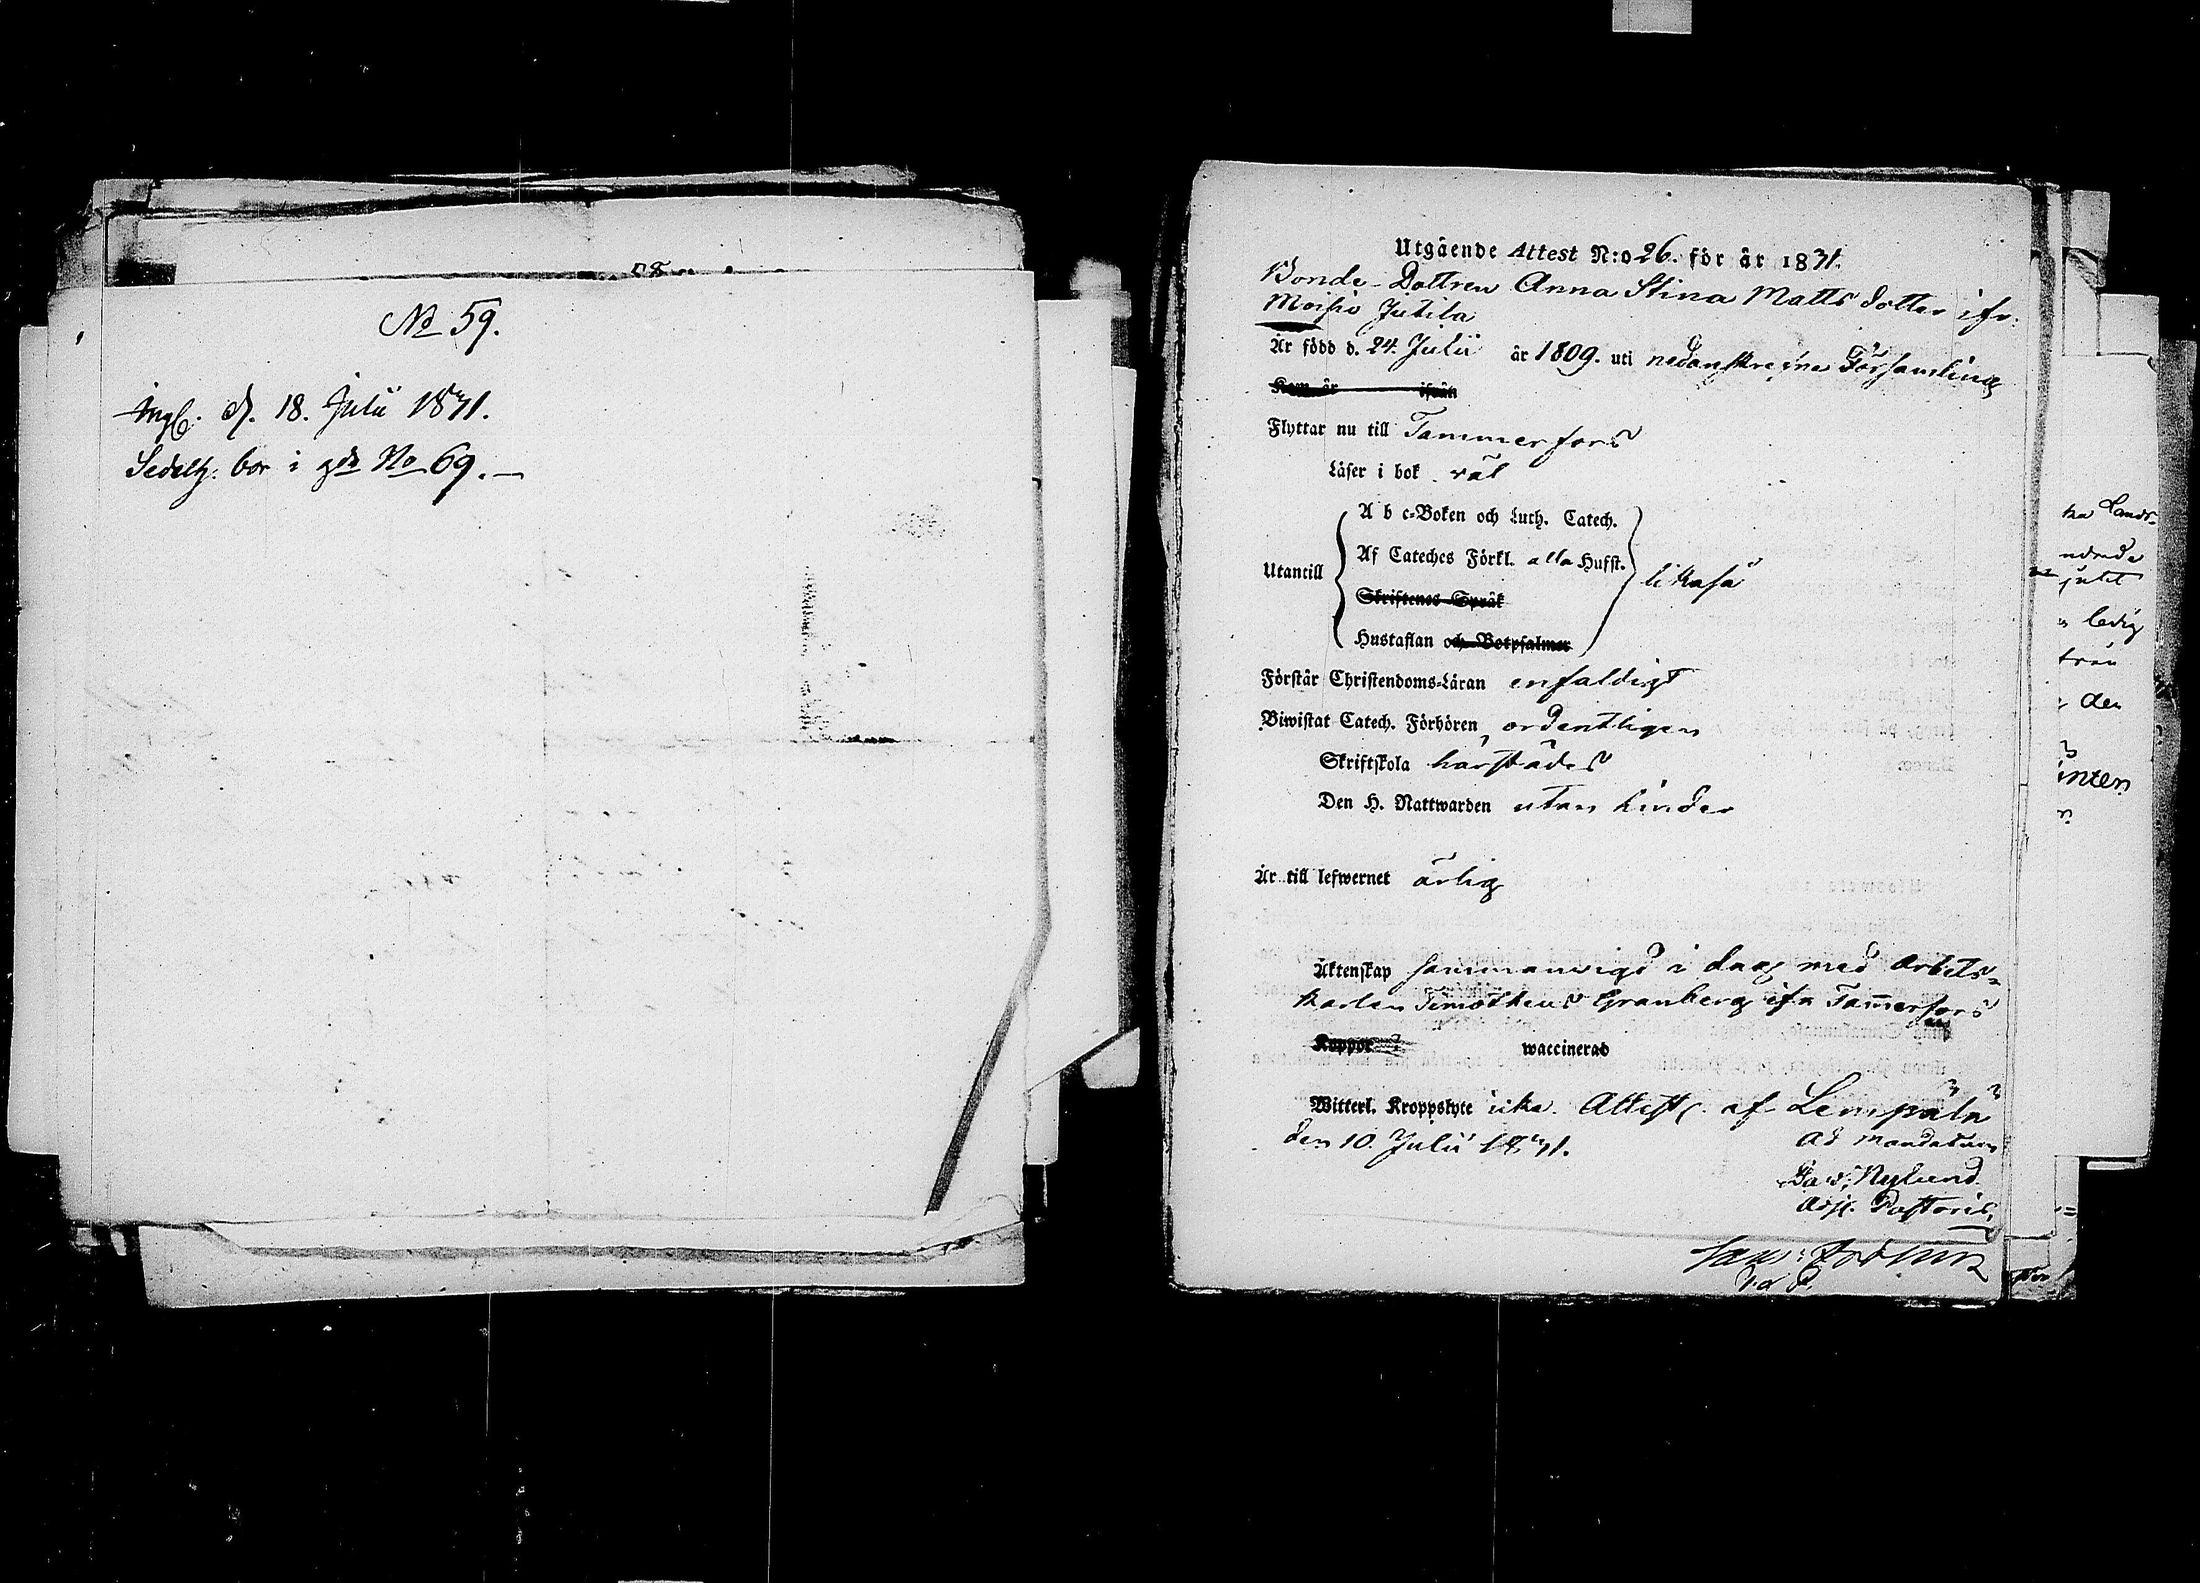 No 59.
Ingl. d. 18. Julii 1831.
Sedelh: bor i gdn No 69. —
Utgående Attest N:o 26. för år 1831.
Bonde-Dottren Anna Stina Matts dotter ifr:
Moisio Jutila
Är född d. 24. Julii år 1809. uti nedanskrefne Församling
Kom år ifrån
Flyttar nu till Tammerfors
Läser i bok väl
A b c-Boken och Luth. Catech.
Af Cateches Förkl. alla Hufst.
Utantill likaså
Skriftenes Språk
Hustaflan och Botpsalmer
Förstår Christendoms-Läran enfaldigt
Biwistat Catech. Förhören, ordentligen
Skriftskola härstädes
Den H. Nattwarden utan hinder
Är till lefwernet ärlig
Äktenskap sammanvigd i dag med Arbets-
karlen Timotheus Granberg ifr Tammerfors
Koppor waccinerad
Witterl. Kroppslyte icke. Attest. af Lempälä
den 10. Julii 1831. Ad mandatum
Dav; Nylund
Adj. Pastoris,
ka Lands-
ndrade
ledig
den